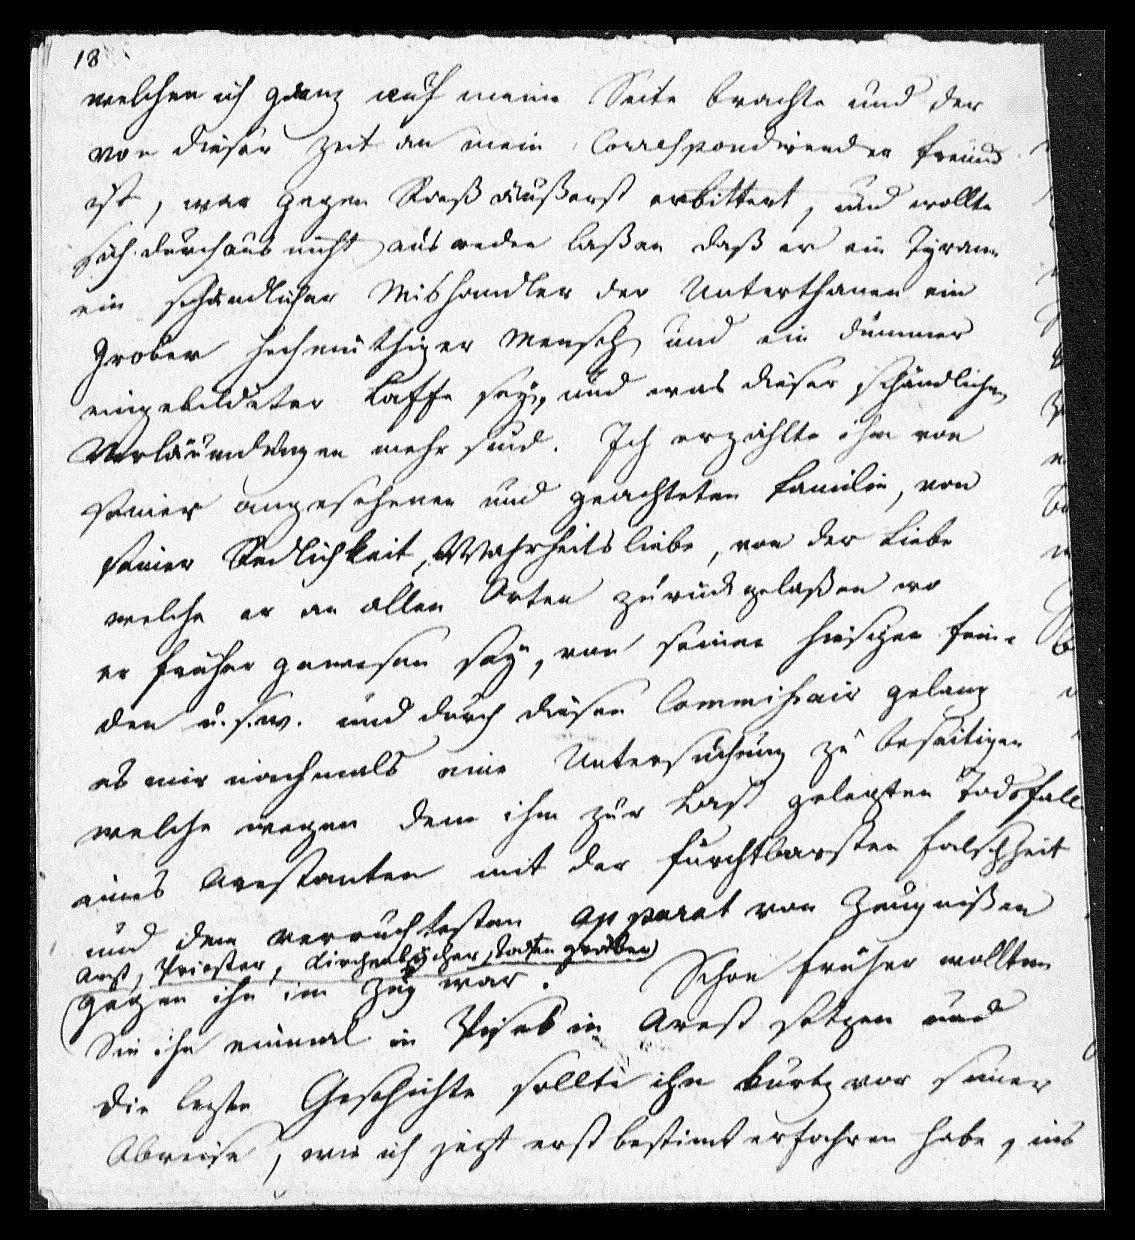 18
welchen ich ganz auf meine Seite brachte und der
von dieser Zeit an mein Correspondirender Freund
ist, war gegen Roeß äußerst erbittert, und wollte
sich durchaus nicht ausreden laßen daß er ein Tyrann
ein schändlicher Mishandler der Unterthanen ein
grober hochmüthiger Mensch und ein dummer
eingebildeter Laffe sey, und was dieser schändlichen
Verläumdungen mehr sind. Ich erzählte ihm von
seiner angesehenen und geachteten Familie, von
seiner Redlichkeit, Wahrheitsliebe, von der Liebe
welche er an allen Orten zurückgelaßen wo
er früher gewesen sey, von seinen hiesigen Fein-
den u.s.w. und durch diesen Commissair gelang
es mir nachmals eine Untersuchung zu beseitigen
welche wegen dem ihm zur Last gelegten Todsfall
eines Arestanten mit der furchtbarsten Falschheit
und dem verruchtesten Apparat von Zeugnißen
(Arzt, Priester, Kirchenbücher, Todtengräber)
gegen ihn im Zug war. Schon früher wollten
Sie ihn einmal in Arest setzen und
die lezte Geschichte sollte ihn kurtz vor seiner
Abreise, wie ich jezt erst bestimt erfahren habe, ins